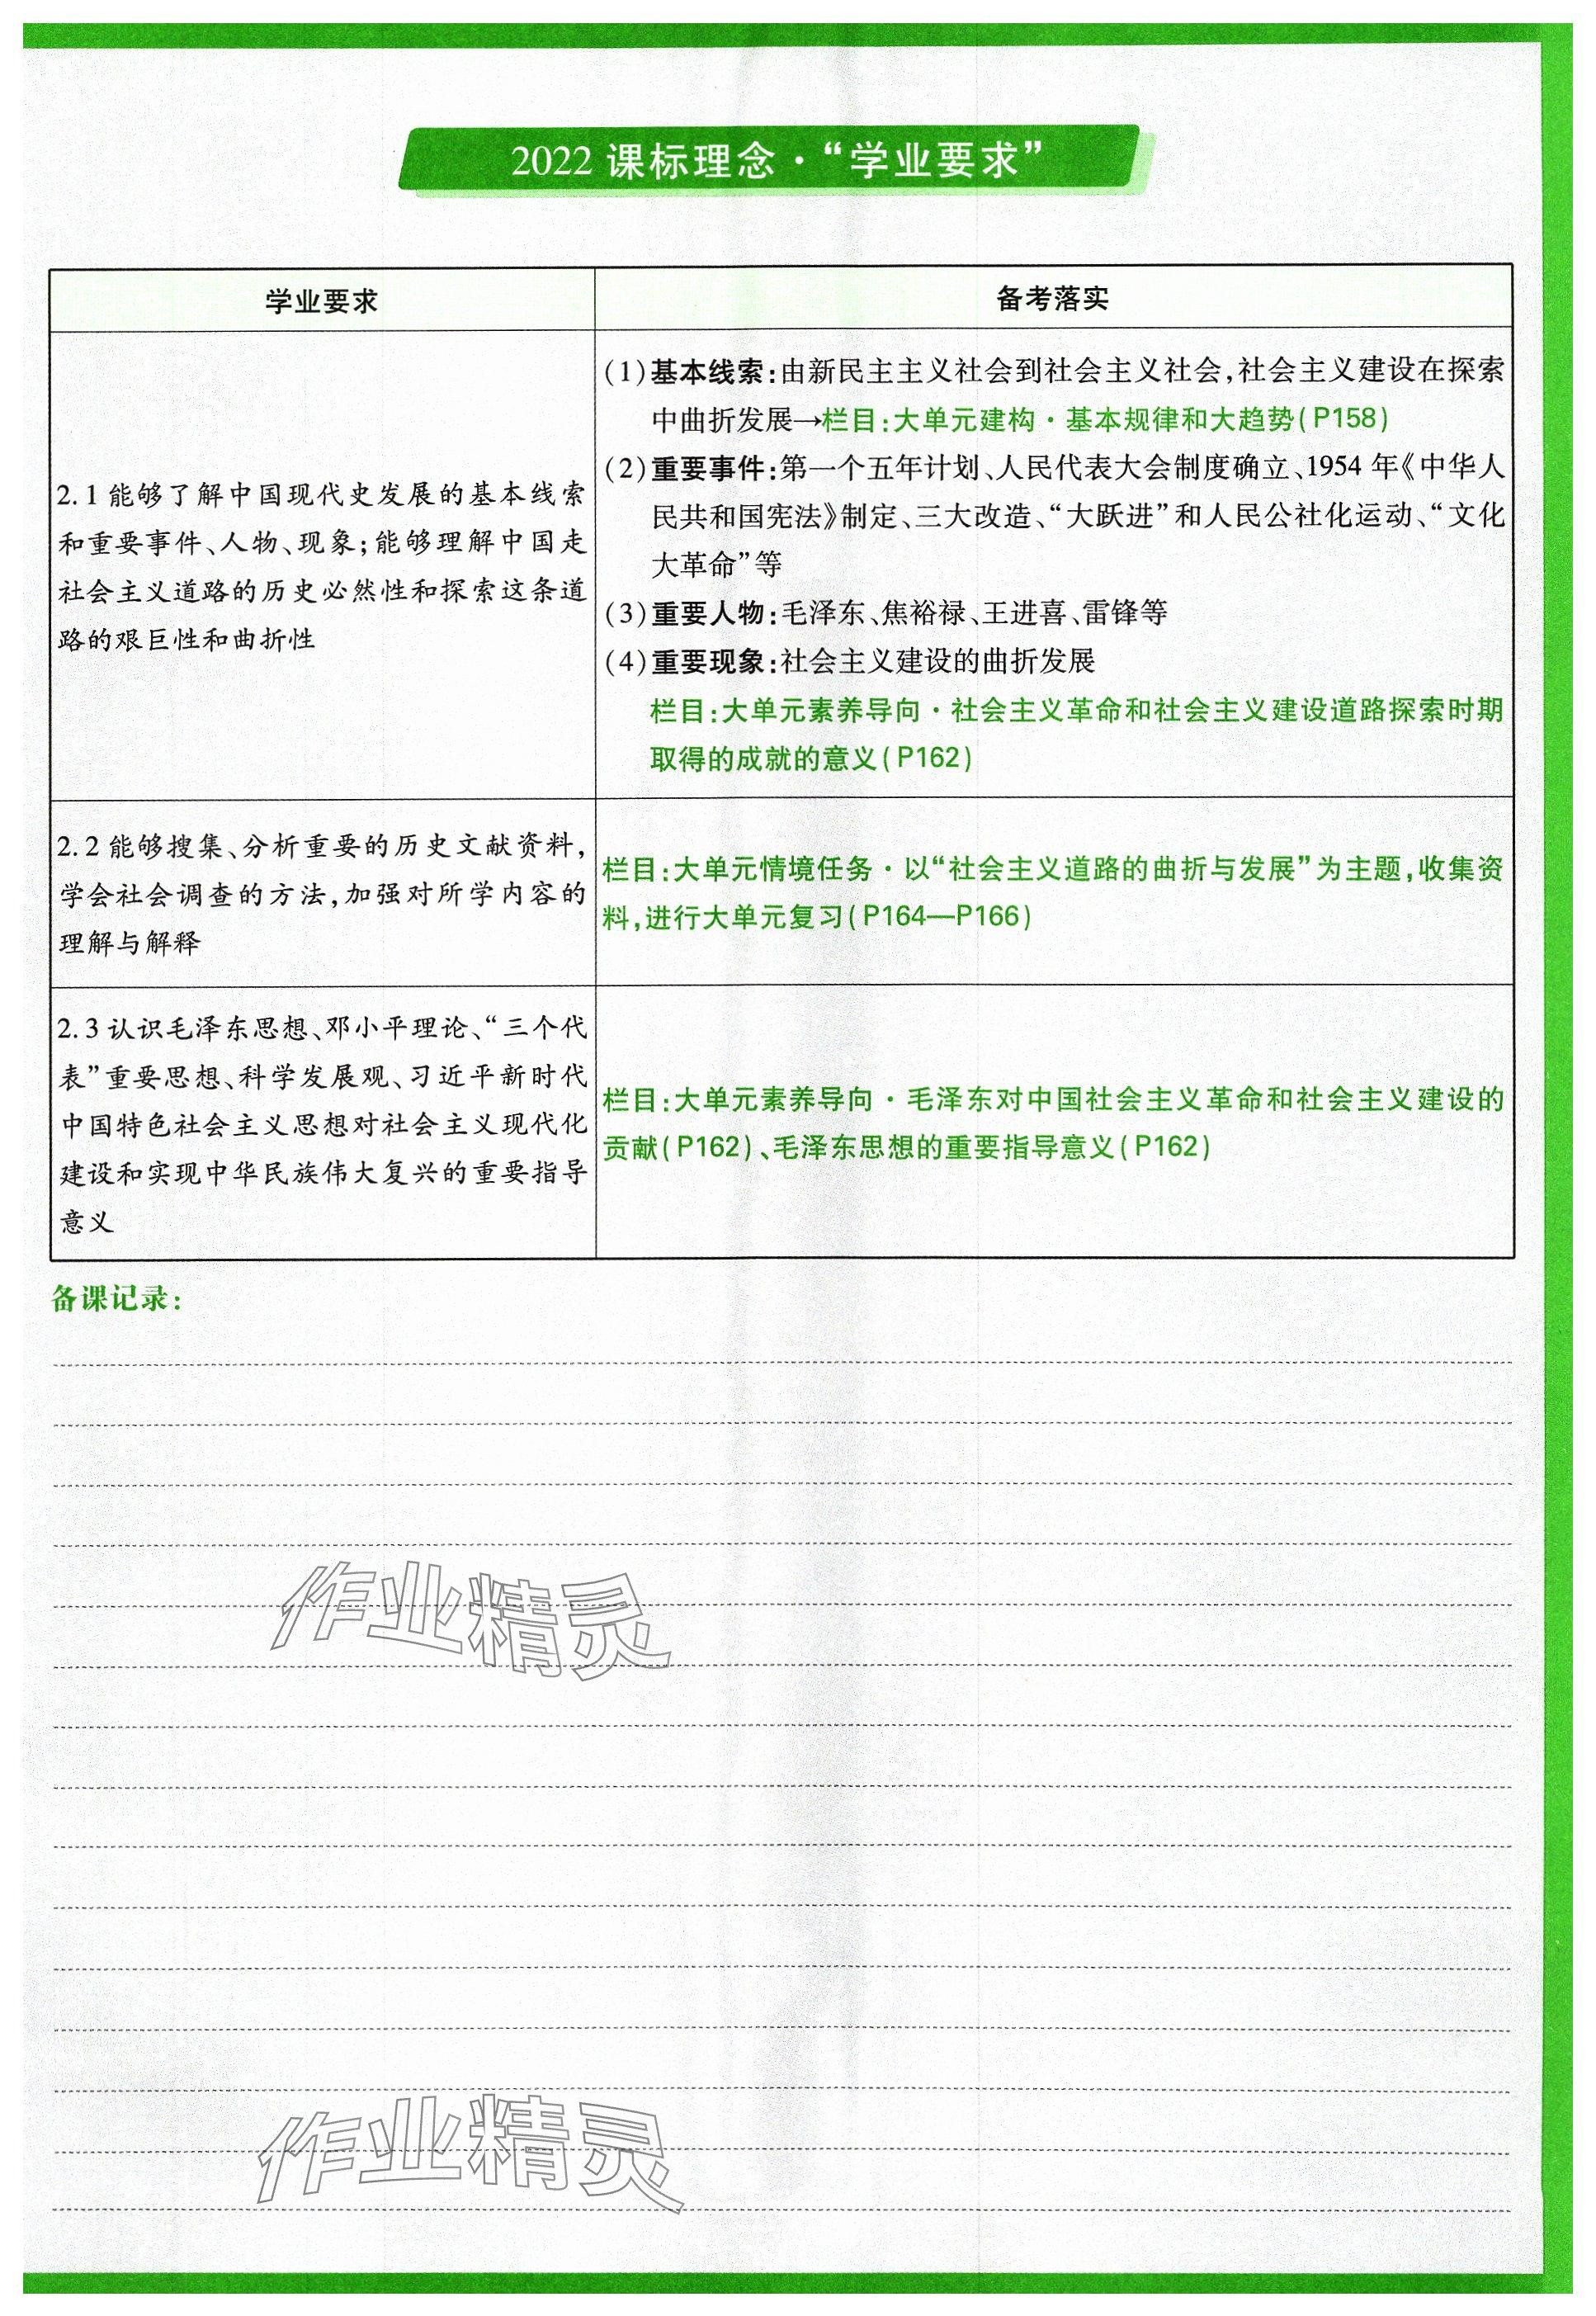 2022 课标理念·“学业要求”
学业要求
备考落实
2.1 能够了解中国现代史发展的基本线索
和重要事件、人物、现象;能够理解中国走
社会主义道路的历史必然性和探索这条道
路的艰巨性和曲折性
(1)基本线索:由新民主主义社会到社会主义社会,社会主义建设在探索
中曲折发展→栏目:大单元建构·基本规律和大趋势(P158)
(2)重要事件:第一个五年计划、人民代表大会制度确立、1954 年《中华人
民共和国宪法》制定、三大改造、“大跃进”和人民公社化运动、“文化
大革命”等
(3)重要人物:毛泽东、焦裕禄、王进喜、雷锋等
(4)重要现象:社会主义建设的曲折发展
栏目:大单元素养导向·社会主义革命和社会主义建设道路探索时期
取得的成就的意义(P162)
2.2 能够搜集、分析重要的历史文献资料,
学会社会调查的方法,加强对所学内容的
理解与解释
栏目:大单元情境任务·以“社会主义道路的曲折与发展”为主题,收集资
料,进行大单元复习(P164—P166)
2.3 认识毛泽东思想、邓小平理论、“三个代
表”重要思想、科学发展观、习近平新时代
中国特色社会主义思想对社会主义现代化
建设和实现中华民族伟大复兴的重要指导
意义
栏目:大单元素养导向·毛泽东对中国社会主义革命和社会主义建设的
贡献(P162)、毛泽东思想的重要指导意义(P162)
备课记录:
作业精灵
作业精灵